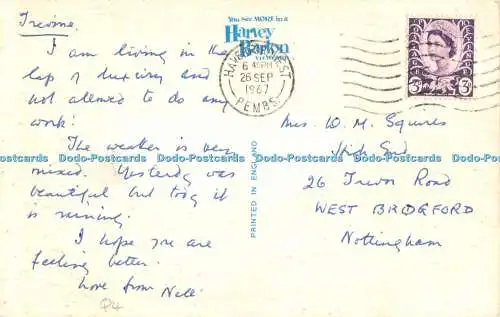 Trevine.
I am living in the
lap of luxury and
not allowed to do any
work!
The weather is very
mixed. Yesterday was
beautiful but today it
is raining.
I hope you are
feeling better.
Love from Nell
P4
You See MORE in a
Harvey
Barton
VIEWCARD
HAVERFORDWEST
6 45PM
26 SEP
1967
PEMBS.
3D 3D
Mrs W. M. Squires
26 Trevor Road
WEST BRIDGFORD
Nottingham
PRINTED IN ENGLAND
Dodo-Postcards Dodo-Postcards Dodo-Postcards Dodo-Postcards Dodo-Postcards Dodo-Postcards Dodo-Postcards